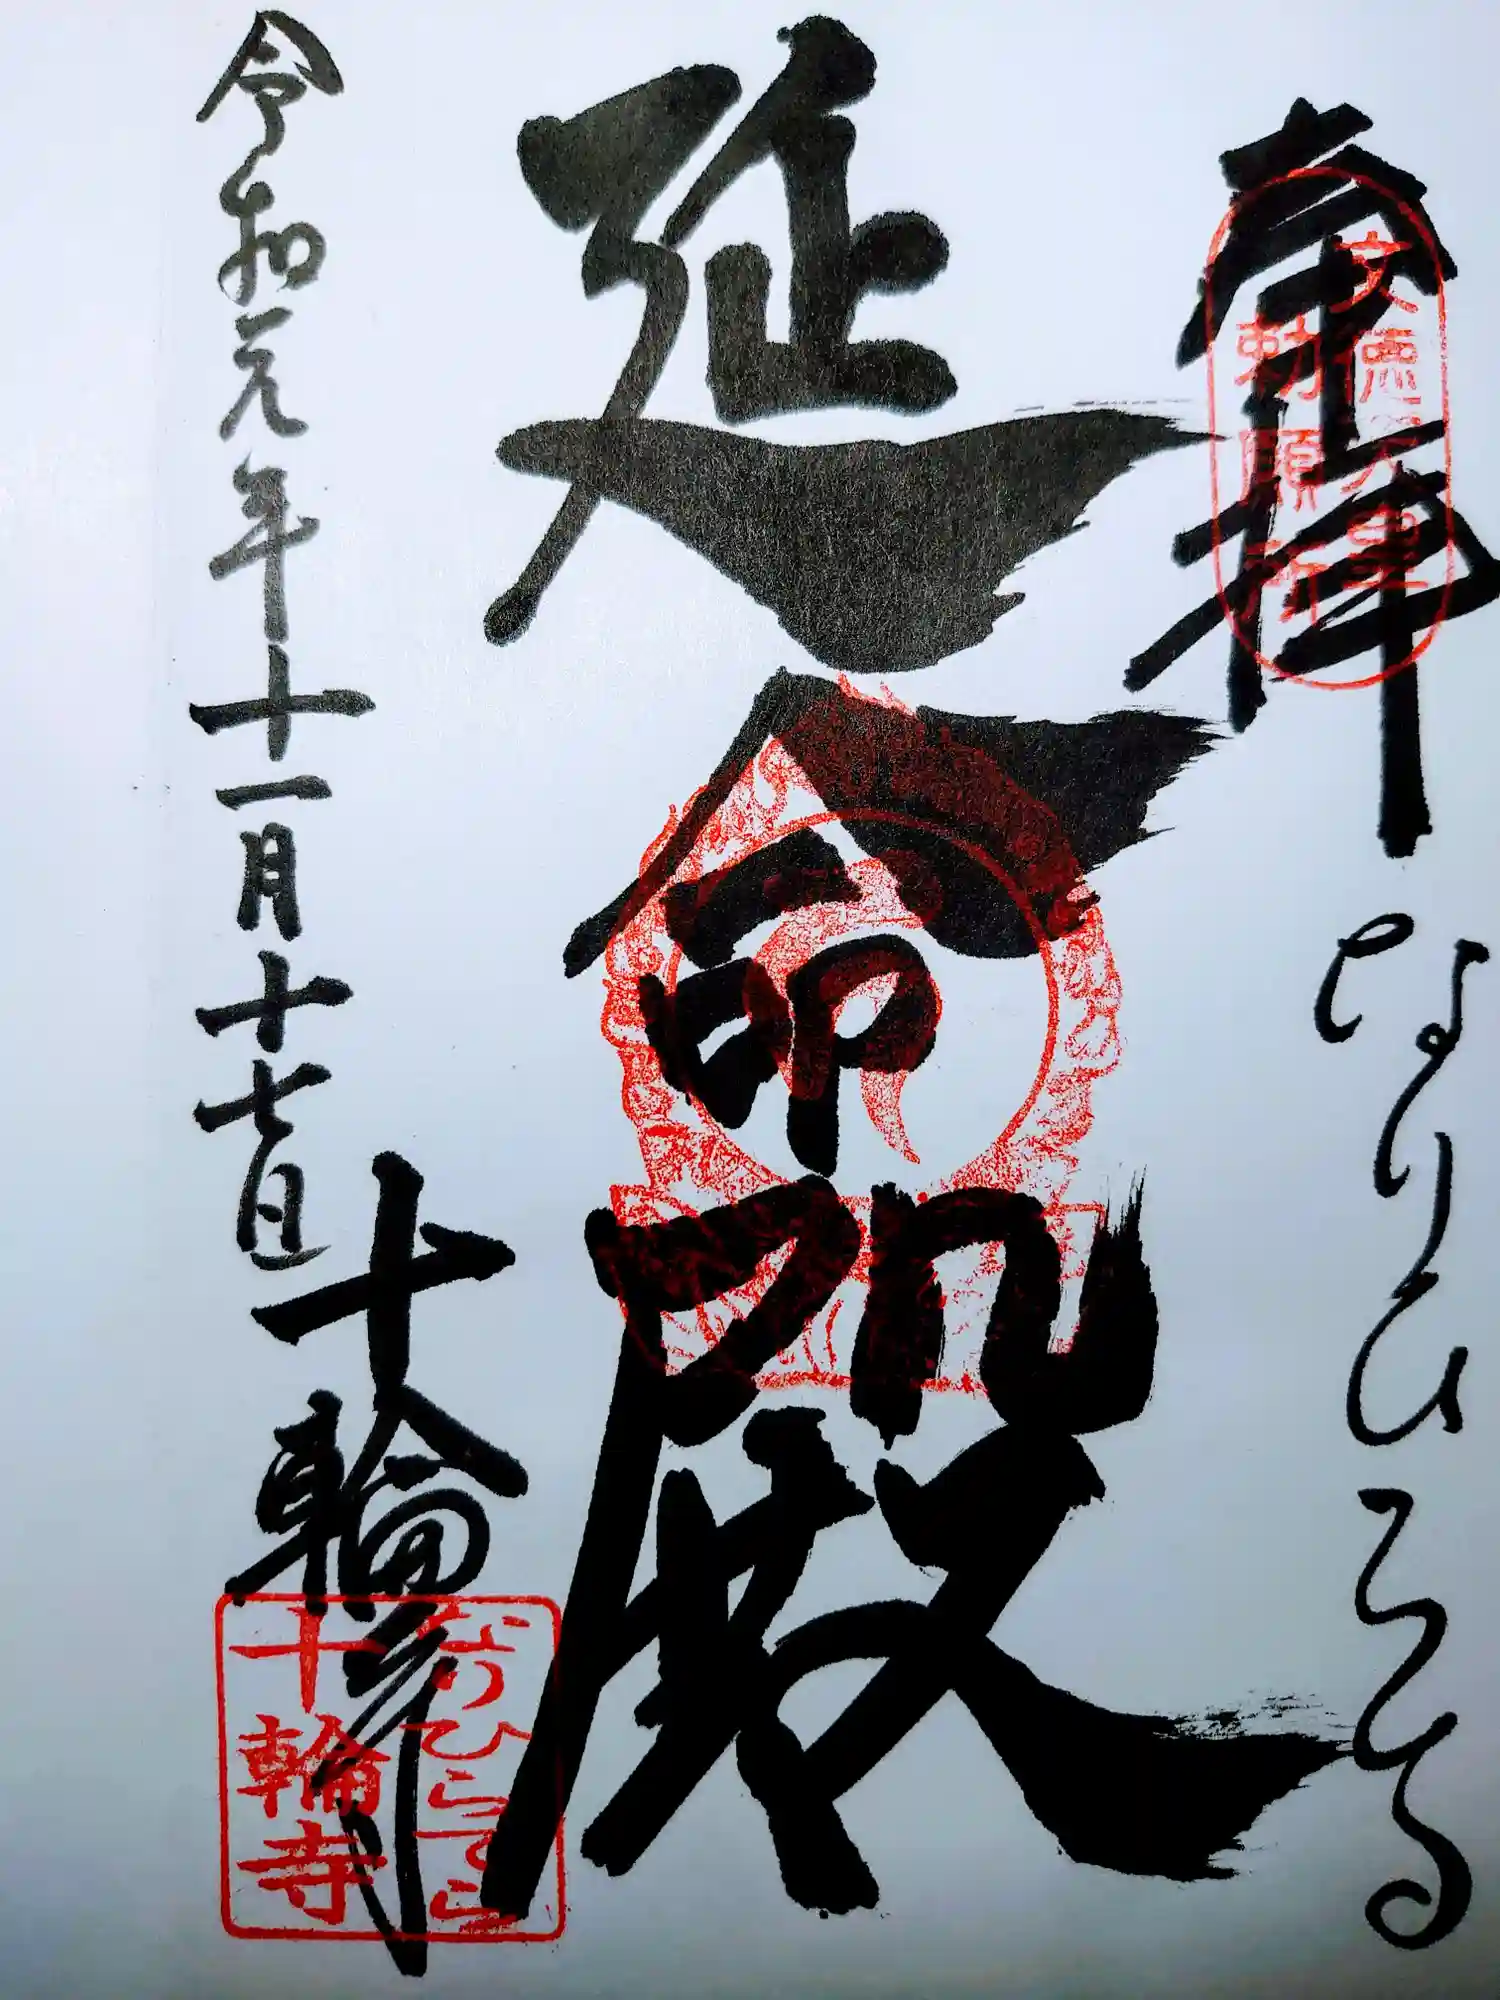 奉拝
なりひらてら
文徳天皇
勅願所
延命殿
令和元年十一月十七日
十輪寺
なりひらてら
十輪寺